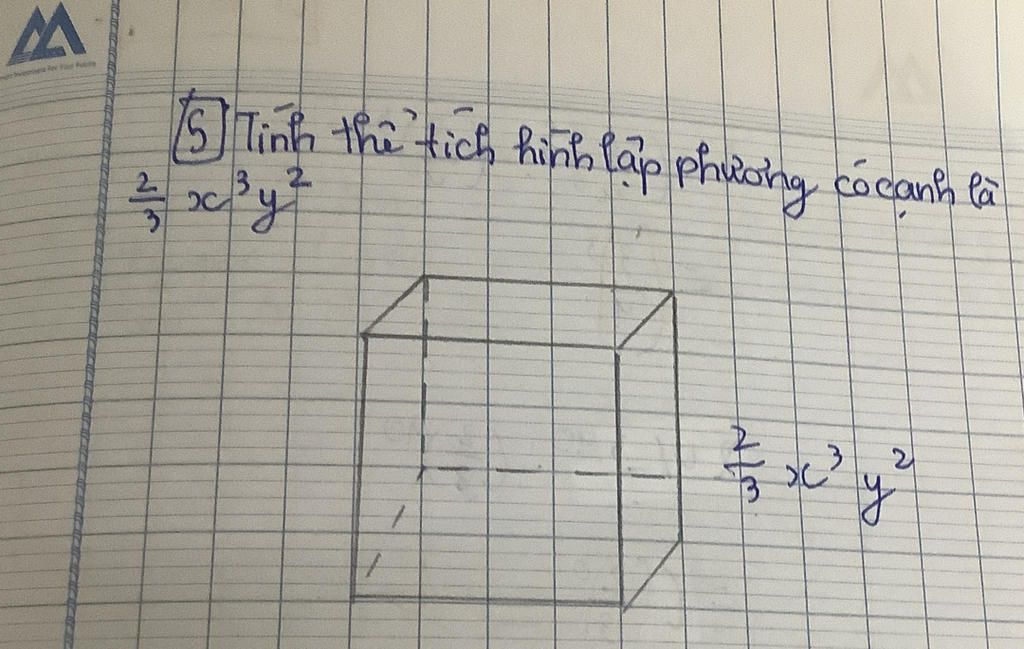 5 Tính thể tích hình lập phương có cạnh là
2/3 x³y²
2/3 x³ y²